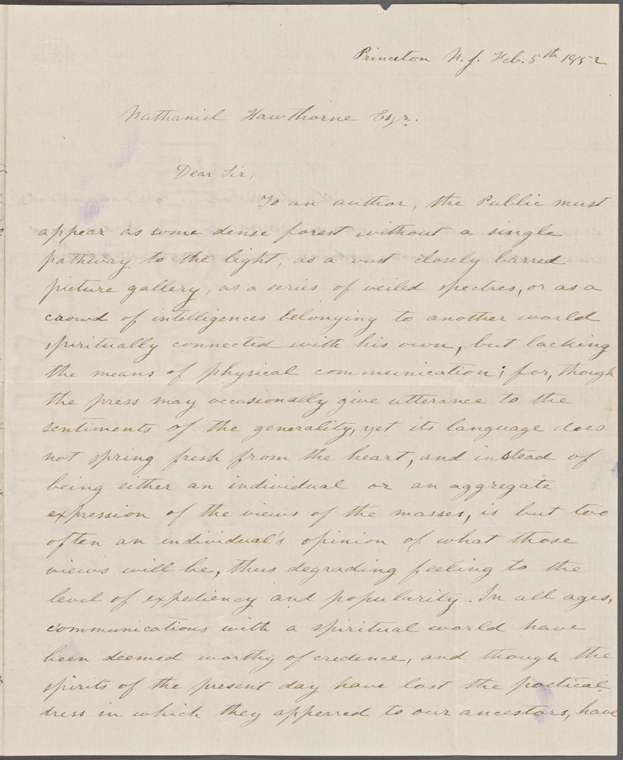 Princeton N.J. Feb. 5th 1852
Nathaniel Hawthorne Esqr.
Dear Sir,
To an author, the Public must
appear as some dense forest without a single
pathway to the light, as a vast closely barred
picture gallery, as a series of veiled spectres, or as a
crowd of intelligences belonging to another world
spiritually connected with his own, but lacking
the means of physical communication; for, though
the press may occasionally give utterance to the
sentiments of the generality, yet its language does
not spring fresh from the heart, and instead of
being either an individual or an aggregate
expression of the views of the masses, is but too
often an individual's opinion of what those
views will be, thus degrading feeling to the
level of expediency and popularity. In all ages,
communications with a spiritual world have
been deemed worthy of credence, and though the
spirits of the present day have lost the poetical
dress in which they appeared to our ancestors, have